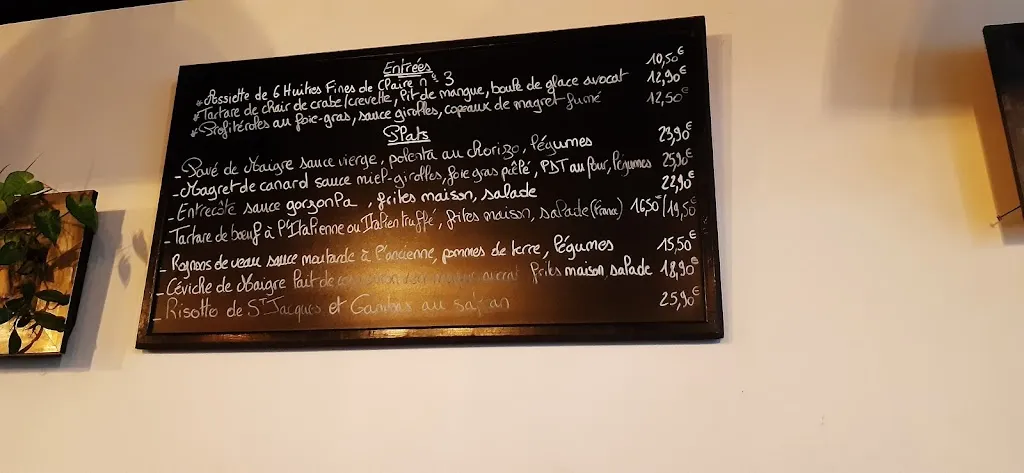 Entrées
* Assiette de 6 Huitres Fines de Claire n° 3 10,50€
* Tartare de chair de crabe/crevette, pit de mangue, boule de glace avocat 12,90€
* Profiteroles au foie-gras, sauce girolles, copeaux de magret fumé 12,50€
Plats
- Pavé de Maigre sauce vierge, polenta au chorizo, légumes 23,90€
- Magret de canard sauce miel-girolles, foie gras poêlé, PDT au four, légumes 25,90€
- Entrecôte sauce gorgonzola, frites maison, salade 22,90€
- Tartare de bœuf à l'Italienne ou Italien truffé, frites maison, salade (France) 16,50€/19,50€
- Rognons de veau sauce moutarde à l'ancienne, pommes de terre, légumes 15,50€
- Céviche de Maigre lait de frites maison, salade 18,90€
- Risotto de St Jacques et Gambas au safran 25,90€